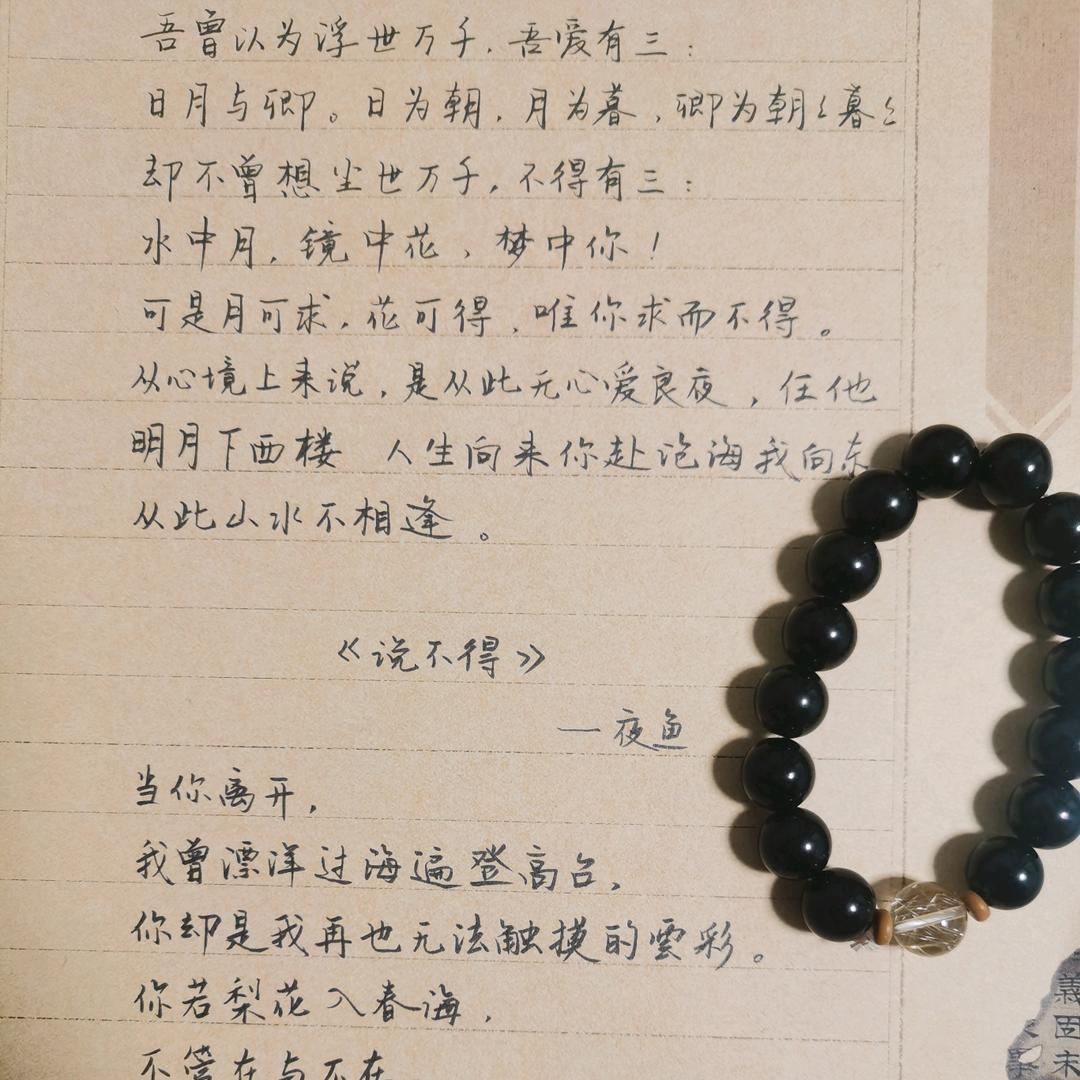 吾曾以为浮世万千,吾爱有三:
日月与卿。日为朝,月为暮,卿为朝々暮々
却不曾想尘世万千,不得有三:
水中月,镜中花,梦中你!
可是月可求,花可得,唯你求而不得。
从心境上来说,是从此无心爱良夜,任他
明月下西楼 人生向来你赴沧海我向东
从此山水不相逢。
《说不得》
—夜鱼
当你离开,
我曾漂洋过海遍登高台,
你却是我再也无法触摸的雲彩。
你若梨花入春海,
不管在与不在
義
固
未